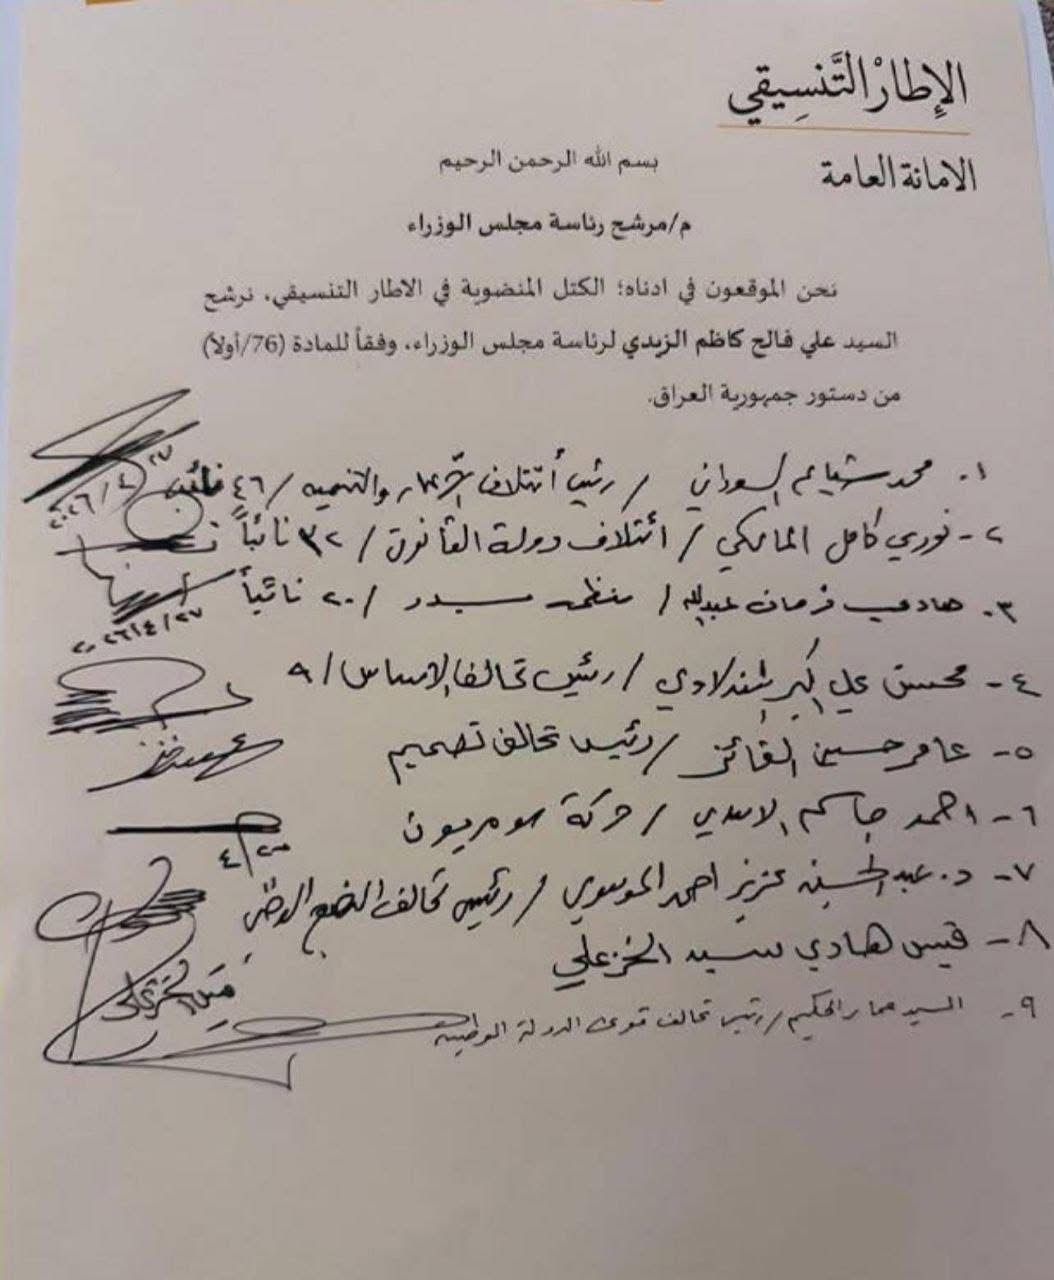 الإِطارْ التَّنسِيقي
الامانة العامة
بسم الله الرحمن الرحيم
م/مرشح رئاسة مجلس الوزراء
نحن الموقعون في ادناه؛ الكتل المنضوية في الاطار التنسيقي، نرشح
السيد علي فالح كاظم الزيدي لرئاسة مجلس الوزراء، وفقاً للمادة (76/أولاً)
من دستور جمهورية العراق.
١- محمد شياع السوداني / رئيس أئتلاف الإعمار والتنمية / ٤٦ نائباً
٢٧/٤/٢٠٢٦
٢- نوري كامل المالكي / ائتلاف دولة القانون / ٣٢ نائباً
٣- هادي فرحان عبدالله / منظمة بدر / ٢٠ نائباً
٢٧/٤/٢٠٢٦
٤- محسن علي اكبر / رئيس تحالف الاساس / ٩
٥- عامر حسين الفائز / رئيس تحالف تصميم
٦- احمد جاسم الاسدي / حركة سومريون
٧- د. عبدالحسين عزيز احمد الموسوي / رئيس تحالف النهج الوطني
٨- قيس هادي سيد الخزعلي
٩- السيد عمار الحكيم / رئيس تحالف قوى الدولة الوطنية